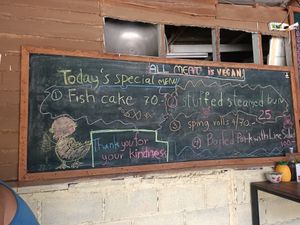 ALL MEAT is VEGAN
Today's special menu
① Fish cake 70.-
② stuffed steamed bun
25
③ spring rolls 4/70
④ Boiled Pork with Lime
Thank you for
your kindness